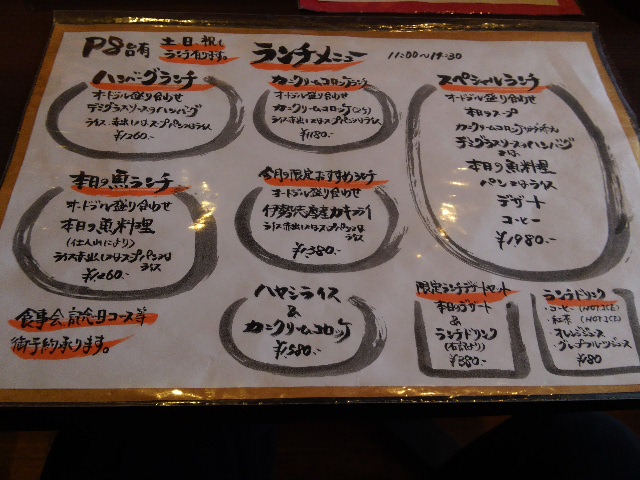 P8台有
土日祝も
ランチ有ります。
ランチメニュー
11:00〜14:30
ハンバーグランチ
オードブル盛り合わせ
デミグラスソースのハンバーグ
ライス、赤出し又はスープ、パン又はライス
¥1260-
カニクリームコロッケランチ
オードブル盛り合わせ
カニクリームコロッケ(2ヶ)
ライス赤出し又はスープパン又はライス
¥1180-
スペシャルランチ
オードブル盛り合わせ
本日のスープ
カニクリームコロッケ
デミグラスソースのハンバーグ
又は、
本日の魚料理
パン又はライス
デザート
コーヒー
¥1980-
本日の魚ランチ
オードブル盛り合わせ
本日の魚料理
(仕入れにより)
ライス赤出し又はスープパン又は
ライス
¥1260-
今月の限定おすすめランチ
オードブル盛り合わせ
伊勢志摩産カキフライ
ライス赤出し又はスープパン又は
ライス
¥1380-
ハヤシライス
&
カニクリームコロッケ
¥1280-
限定ランチデザートセット
本日のデザート
&
ランチドリンク
(右記より)
¥380-
ランチドリンク
・コーヒー(HOT,ICE)
・紅茶(HOT,ICE)
・オレンジジュース
・グレープフルーツジュース
¥80
食事会、記念日コース等
御予約承ります。